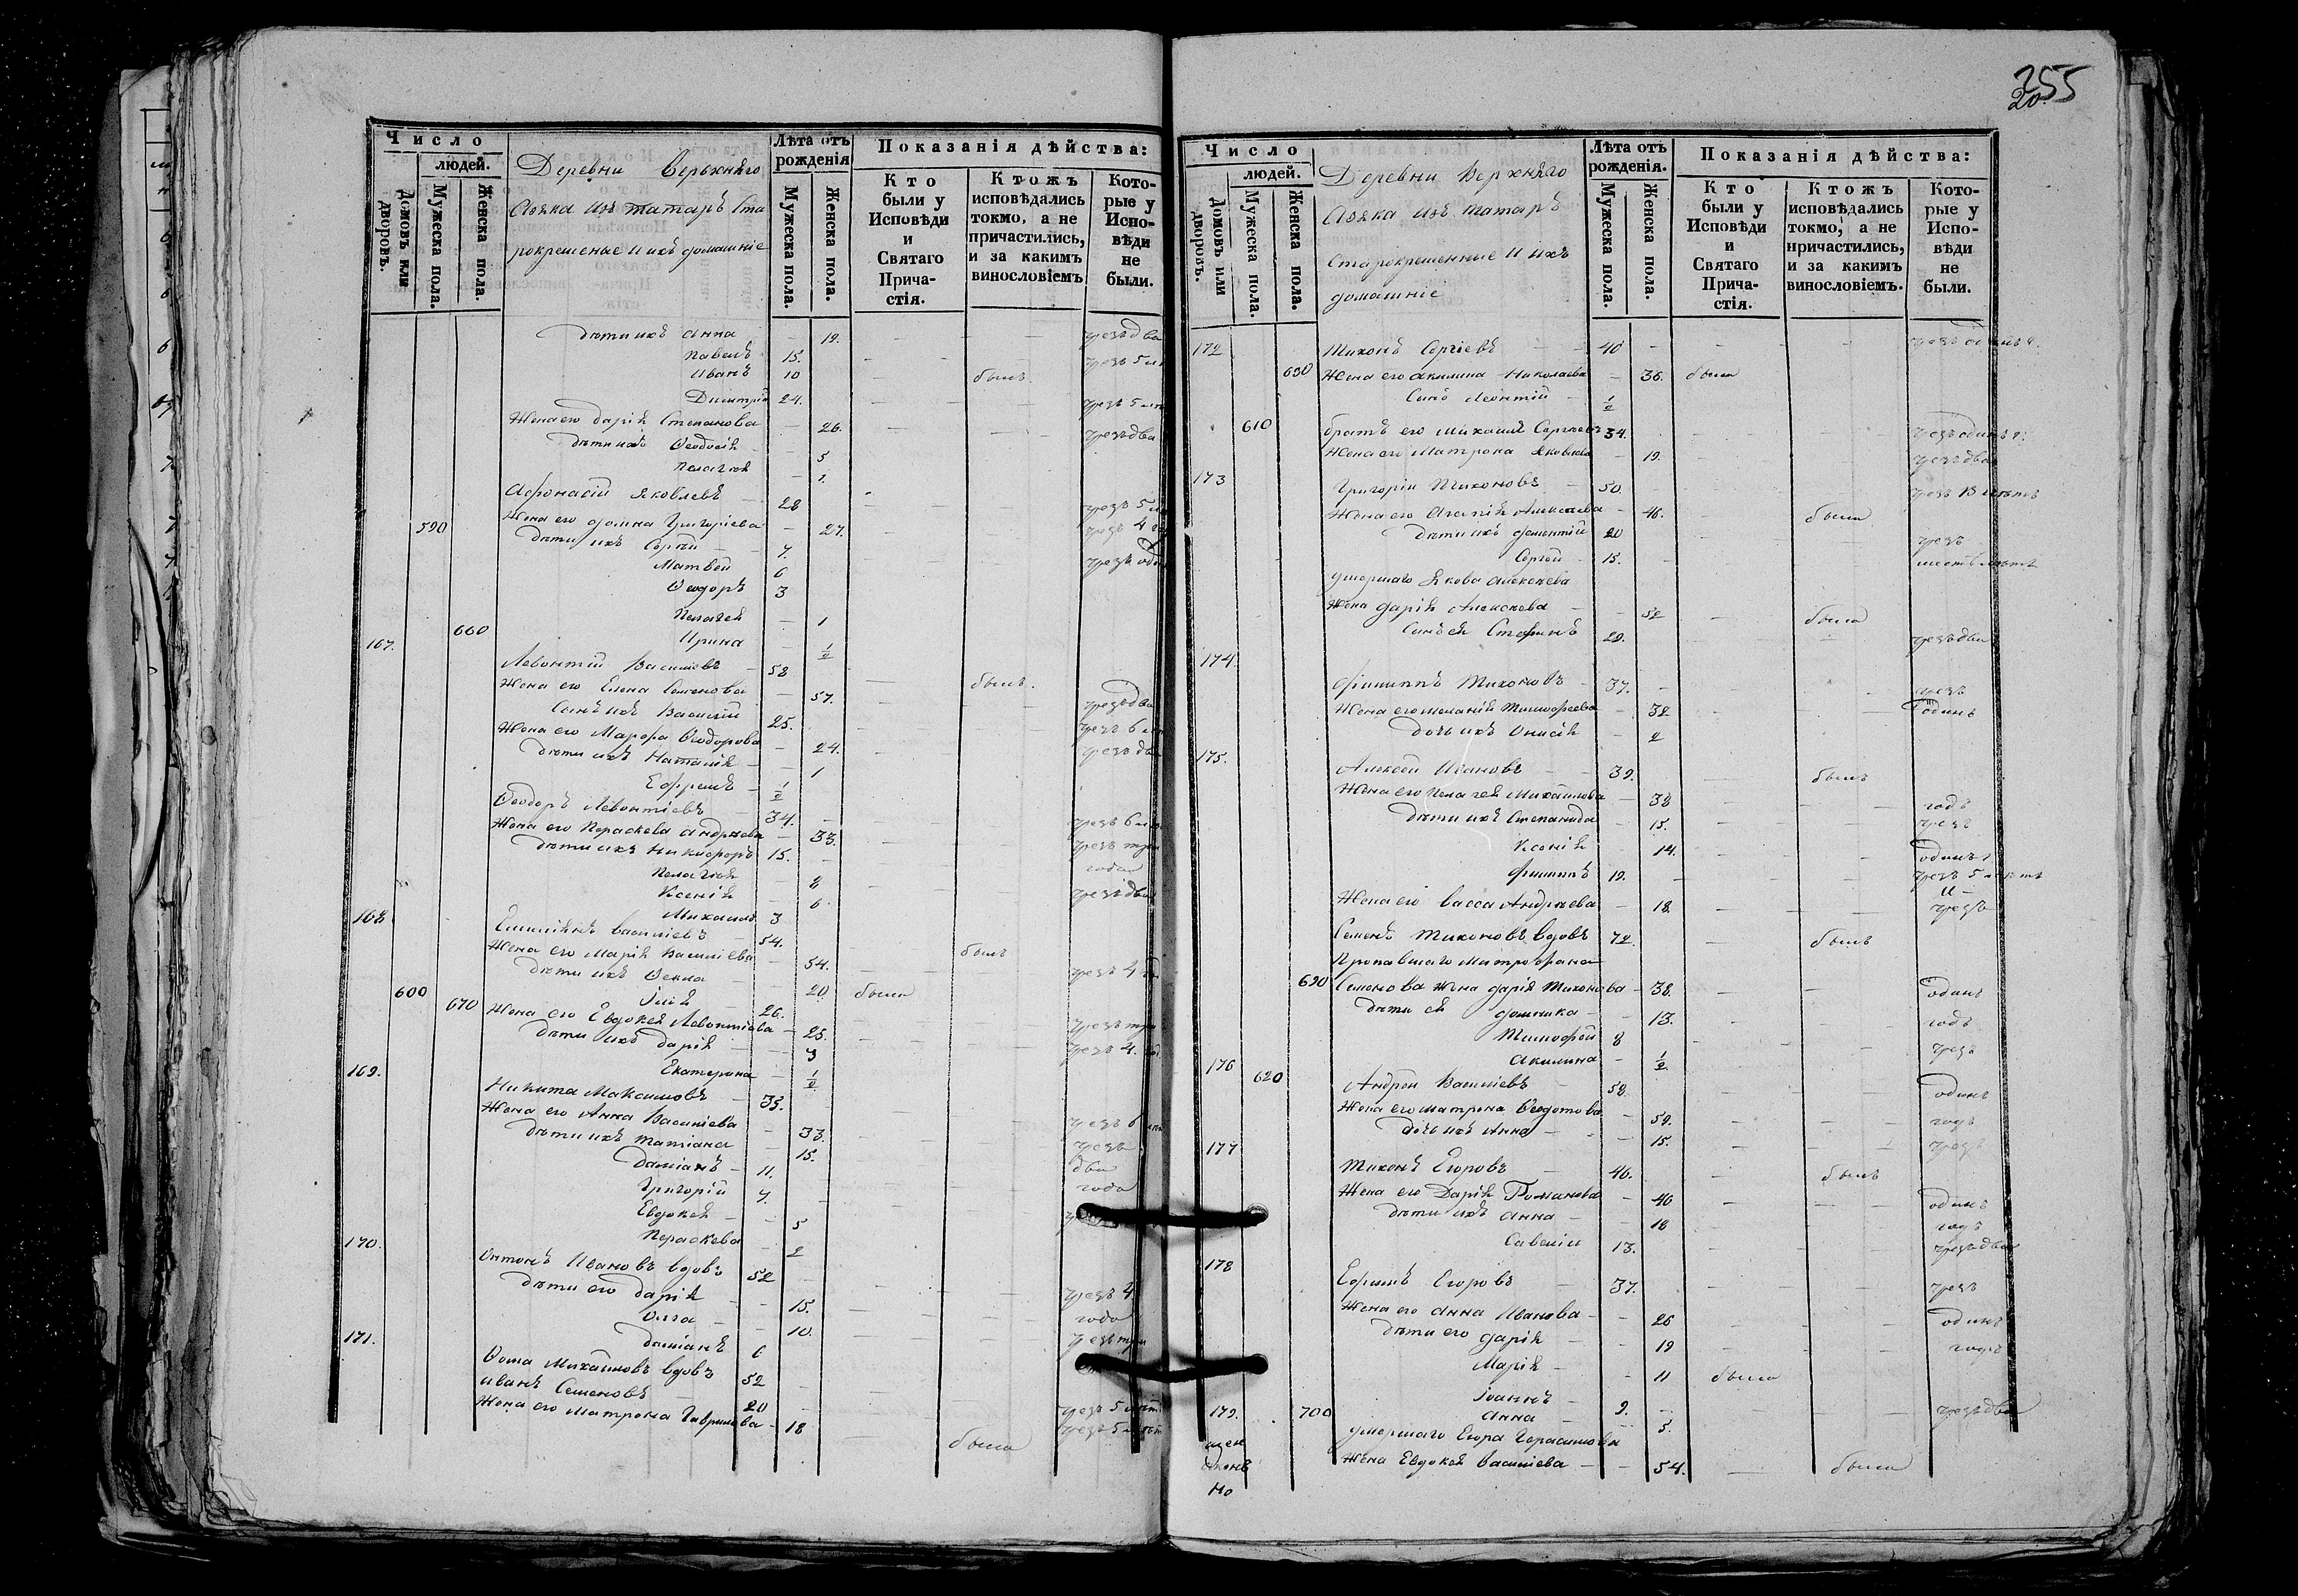 255
20
Число
людей.
Домовъ или дворовъ.
Мужеска пола.
Женска пола.
Деревни Верхняго
Аояка изъ татаръ Ста
рокрещеные и ихъ домашніе
Лѣта отъ рожденія
Мужеска пола.
Женска пола.
Показанія дѣйства:
Кто были у Исповѣди и Святаго Прича-стія.
Ктожъ исповѣдались токмо, а не причастились, и за какимъ винословіемъ
Кото-рые у Испо-вѣди не были.
дѣти ихъ Анна – 19. чрезъ два
Павелъ 15. чрезъ 5 лѣ
Иванъ 10 былъ.
Димитрій 24. чрезъ 5 лѣ
Жена его Дарія Степанова – 26. чрезъ два
дѣти ихъ Феодосія – 5
Пелагея –
Афонасій Яковлевъ – 28 чрезъ 5 лѣ
590 Жена его Домна Григоріева – 27. чрезъ 4 го
дѣти ихъ Сергѣй – 7.
Матвей 6 чрезъ оди
Феодоръ 3
Пелагея – 1
660 Ирина – ½
167. Левонтій Василіевъ – 58 былъ.
Жена его Елена Семенова – 57. чрезъ два
Сынъ ихъ Василій 25. чрезъ 6 лѣ
Жена его Марфа Феодорова – 24. чрезъ два
дѣти ихъ Наталія – 1
Ефремъ – ½
Феодоръ Левонтіевъ 34. чрезъ 6 лѣ
Жена его Параскева Андреева 33. чрезъ три
дѣти ихъ Никифоръ 15. года
Пелагея – 8
Ксенія – 6 чрезъ два
Михаилъ 3
168 Емиліянъ Василіевъ – 54. былъ
Жена его Марія Василіева – 54. чрезъ 4
дѣти ихъ Фекла – 20 была
600 Илія 26.
670 Жена его Евдокея Левонтіева – 25. чрезъ три
дѣти ихъ Дарія – 3 чрезъ 4.
Екатерина – ½
169. Никита Максимовъ – 35.
Жена его Анна Василіева – 33. чрезъ 6
дѣти ихъ Татіана – 15. чрезъ
Даміанъ – 11. два
Григорій 7. года
Евдокея – 5
Параскева – 2
170. Антонъ Ивановъ вдовъ 52
дѣти его Дарія – 15. чрезъ 4
Олга – 10. года
Даміанъ 6 чрезъ три
171. Фома Михайловъ вдовъ 52
Иванъ Семеновъ – 20 чрезъ 5 лѣт
Жена его Матрона Гаврилова – 18 была чрезъ 5 лѣт
Число
людей.
Домовъ или дворовъ.
Мужеска пола.
Женска пола.
Деревни Верхняго
Аояка изъ татаръ
Старокрещенные и ихъ
домашніе
Лѣта отъ рожденія.
Мужеска пола.
Женска пола.
Показанія дѣйства:
Кто были у Исповѣди и Святаго Прича-стія.
Ктожъ исповѣдались токмо, а не причастились, и за какимъ винословіемъ.
Кото-рые у Испо-вѣди не были.
172 Тихонъ Сергіевъ – 40 чрезъ одинъ г.
680 Жена его Акилина Николаева – 36. была
Сынъ Леонтій – ½
610 братъ его Михаилъ Сергѣевъ 34. чрезъ одинъ г.
Жена его Матрона Яковлева – 19. чрезъ два
173 Григорій Тихоновъ – 50. чрезъ 13 лѣтъ
Жена его Агапія Алексеева – 46. была
дѣти ихъ Дементій 20 чрезъ
Сергей – 15. шесть лѣтъ
умершаго Якова Алексеева
Жена Дарія Алексеева – 52 была
Сынъ ея Стафанъ 29. чрезъ два
174. Филиппъ Тихоновъ – 37. чрезъ
Жена его Меланія Тимофеева – 32 одинъ
дочь ихъ Онисія – 2
175. Алексей Ивановъ – 39. былъ
Жена его Пелагея Михайлова – 38 годъ
дѣти ихъ Степанида – 15. чрезъ
Ксенія – 14. одинъ г
Филипъ 19. чрезъ 5 лѣтъ
Жена его Васса Андреева – 18. чрезъ
Семенъ Тихоновъ вдовъ 72. былъ
Пропавшаго Митрофана
690 Семенова Жена Дарія Тихонова – 38. одинъ
дѣти ея Домника – 13. годъ
Тимофей 8 чрезъ
Акилина – ½
176 620 Андрей Василіевъ – 58 одинъ
Жена его Матрона Феодотова – 59. годъ
дочь ихъ Анна – 15. чрезъ
177 Тихонъ Егоровъ – 46. былъ
Жена его Дарія Романова – 40 одинъ
дѣти ихъ Анна – 18 годъ
Савелій 13. чрезъ два
178 Ефимъ Егоровъ – 37. чрезъ
Жена его Анна Иванова – 26 одинъ
дѣти его Дарія – 19 годъ
Марія – 11 была
Іоаннъ – 9.
179. 700 Анна – 5. чрезъ два
умершаго Егора Герасимова
Жена Евдокея Василіева – 54. была